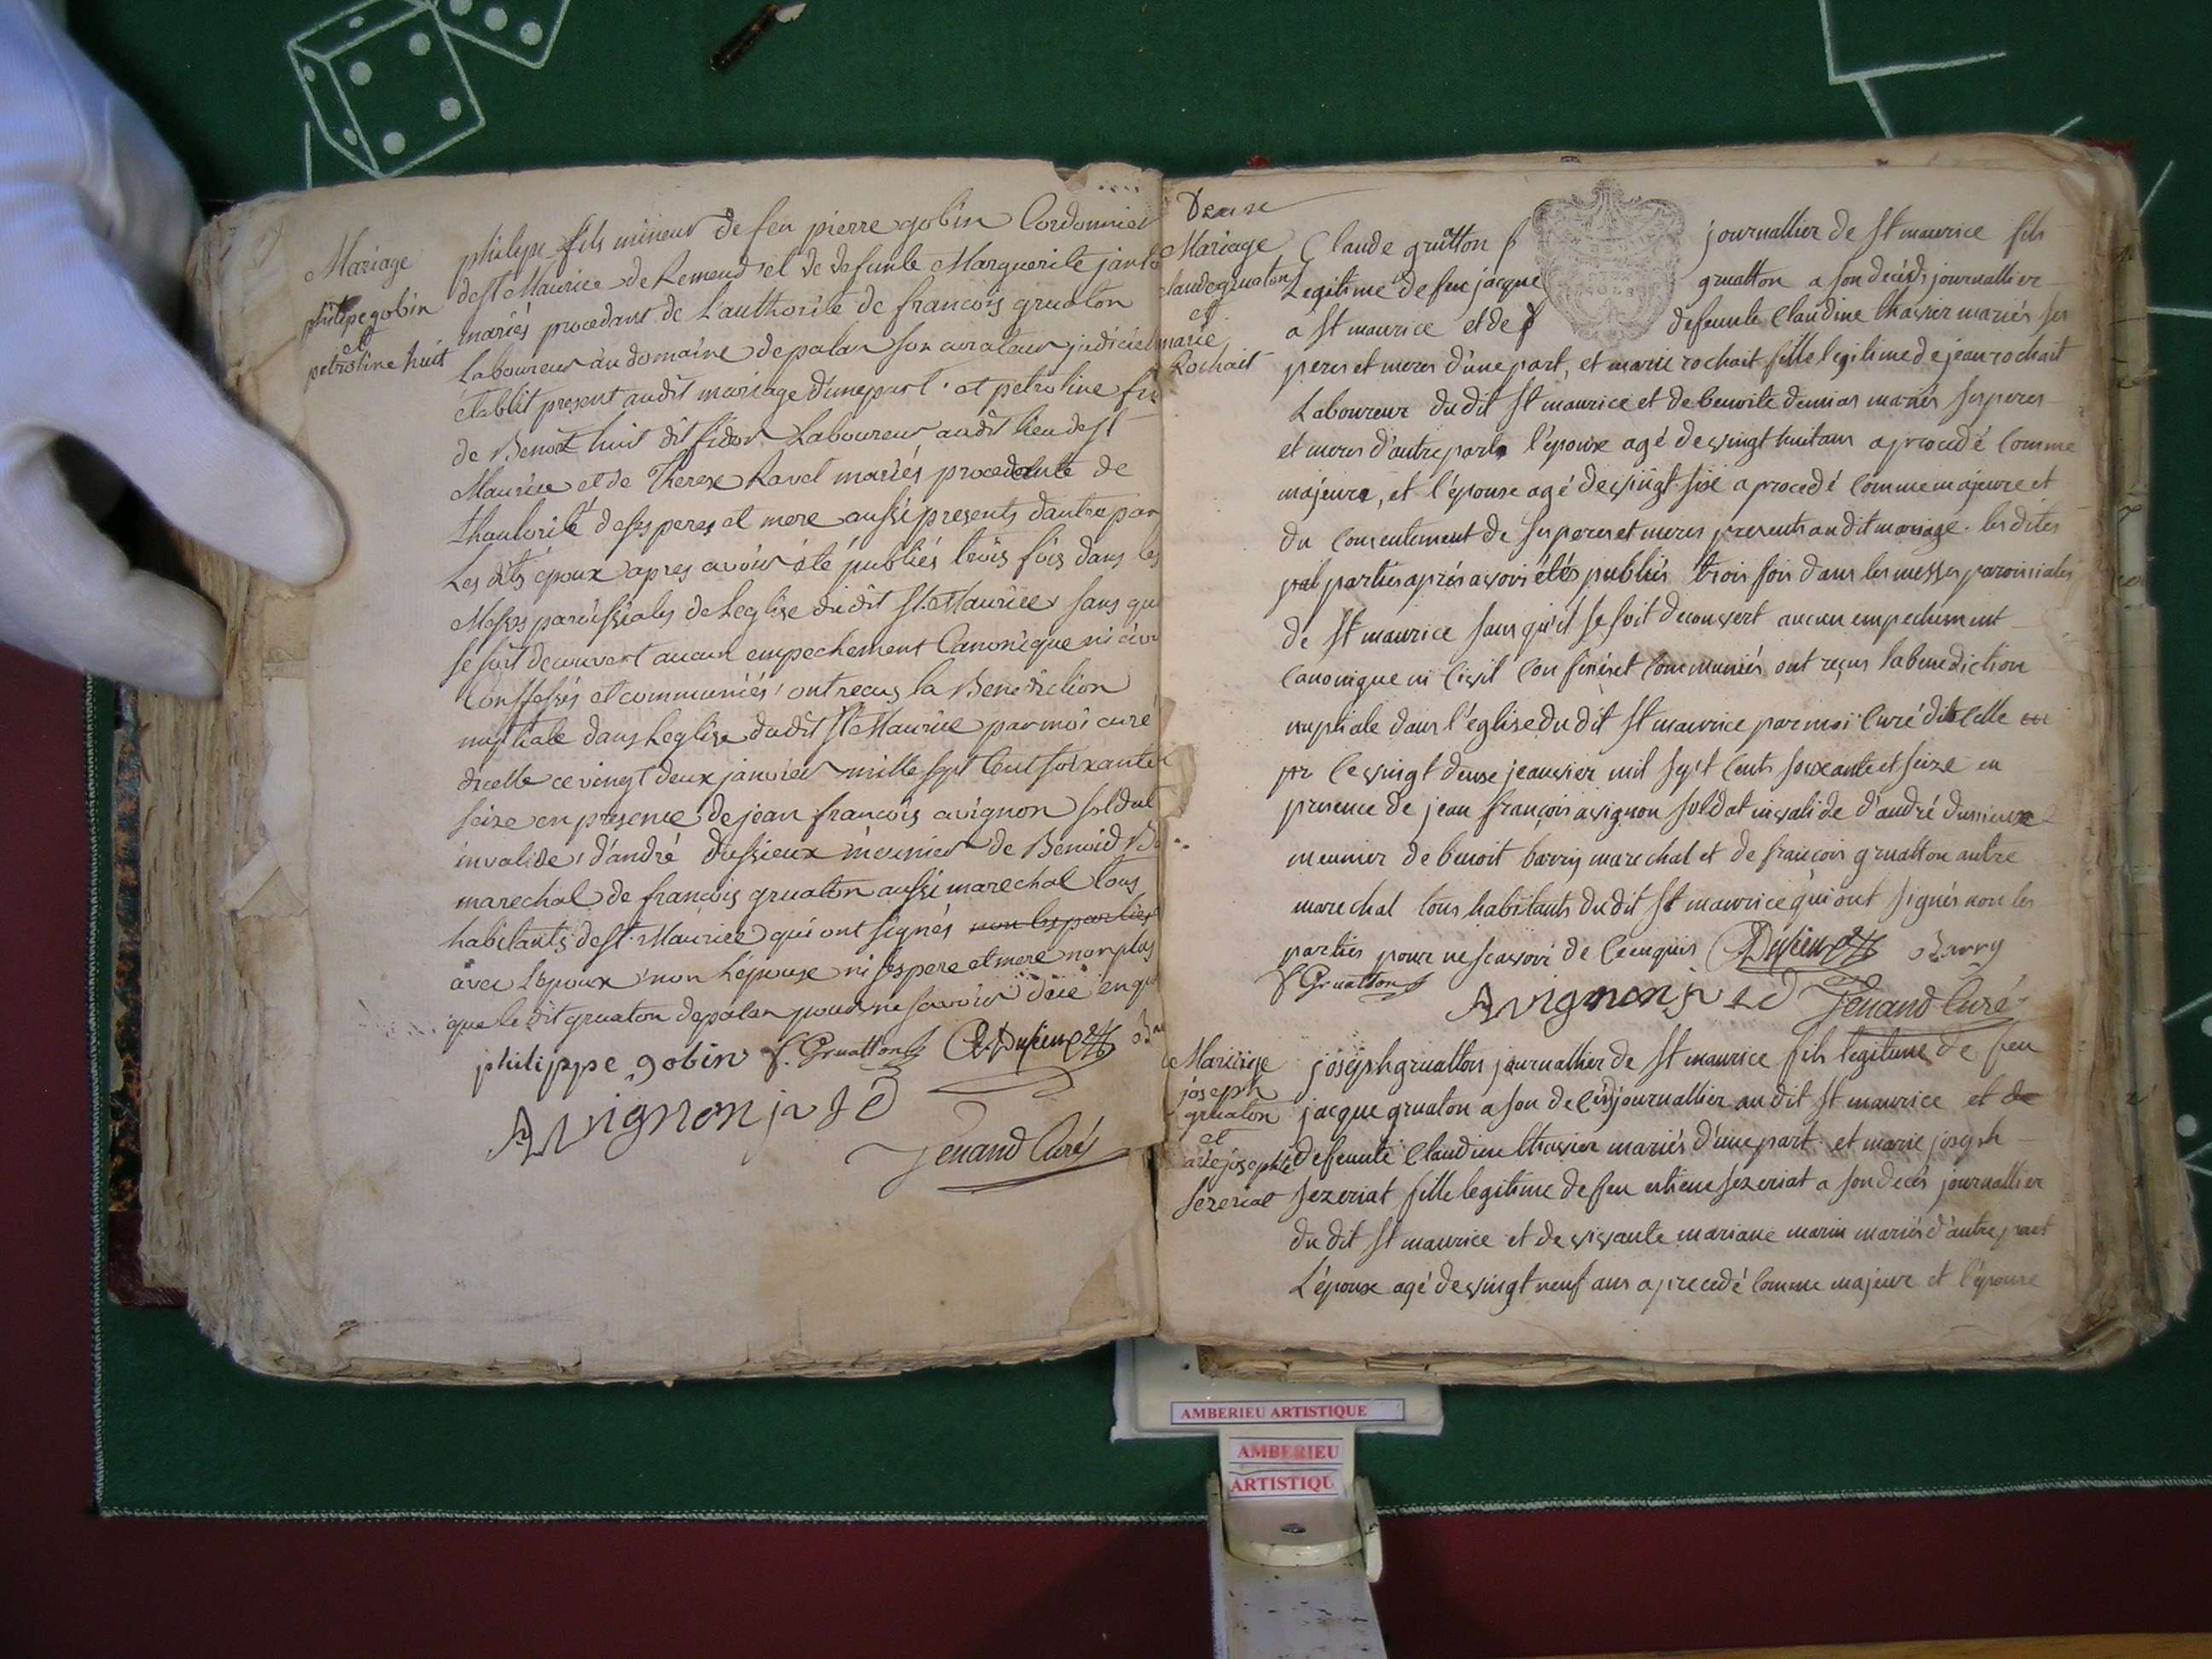 Mariage
philipe gobin
et
petroline huit
philipe fils mineur de feu pierre gobin Cordonnier
de st Maurice de Remend et de defunte Marguerite
mariés procedant de L'authorité de francois gruaton
Laboureur au domaine de palan son curateur judiciel
etablit present audit mariage d'une part. et petroline
de Benoit huit dit Laboureur audit lieu de st
Maurice et de Therese Ravet mariés procedante de
Lhautorité de ses peres et mere aussi presents dautre par
Les dits époux apres avoir été publiés trois fois dans les
Messes paroissiales de Leglise du dit St Maurice sans qu
se soit decouvert aucun empechement Canonique ni
Conffessés et communiés ont recus la Benediction
nuptiale dans Leglise dudit St Maurice par moi curé
dicelle ce vingt deux janvier mille sept Cent soixante
seize en presence de jean francois avignon soldat
invalide, d'andré dussieux meunier de Benoid
marechal de francois gruaton aussi marechal tous
habitants de st. Maurice qui ont signés non les parties
avec L'epoux non L'epouse ni ses pere et mere non plus
que le dit gruaton de palan pour ne savoir de ce enqu
philippe gobin f. Gruatton
Avignon
Fenand Curé
Mariage
claude gruaton
et
marie
Rochait
Claude gruatton journallier de st maurice fils
Legitime de feu jacque gruatton a son decéds journallier
a st maurice et de defeunte Claudine thavier mariés ses
peres et meres d'une part, et marie rochait fille legitime de jean rochait
Laboureur du dit st maurice et de benoite mariés ses peres
et meres d'autre part. l'époux agé de vingt huit ans a procedé Comme
majeure, et l'épouse agé de vingt six a procedé Comme majeure et
du Consentement de ses peres et meres presents au dit mariage. les dites
parties aprés avoir étés publiés trois fois dans les messes paroissiales
de St maurice sans qu'il se soit decouvert aucun empechement
Canonique ni Civil Confessés et Communiés ont reçus la benediction
nuptiale dans l'eglise du dit St maurice par moi Curé
ce vingt deuse jeanvier mil sept cents soixante et seize en
presence de jean françois avignon soldat invalide d'andré dussieux
meunier de benoit barry marechal et de françois gruatton autre
marechal tous habitants du dit St maurice qui ont signés non les
parties pour ne scavoir de Ce enquis Barry
f. Gruatton
Avignon Fenand Curé
Mariage
joseph
gruaton
et
josephte
Sezeriat
joseph gruatton journallier de St maurice fils legitime de feu
jacque gruaton a son decéds journallier au dit St maurice et de
defeunte Claudine thavier mariés d'une part. et marie joseph
Sezeriat fille legitime de feu etiene Sezeriat a son decés journallier
du dit St maurice et de vivante mariane marin mariés d'autre part
L'époux agé de vingt neuf ans a procedé Comme majeure et l'épouse
AMBERIEU ARTISTIQUE
AMBERIEU
ARTISTIQU